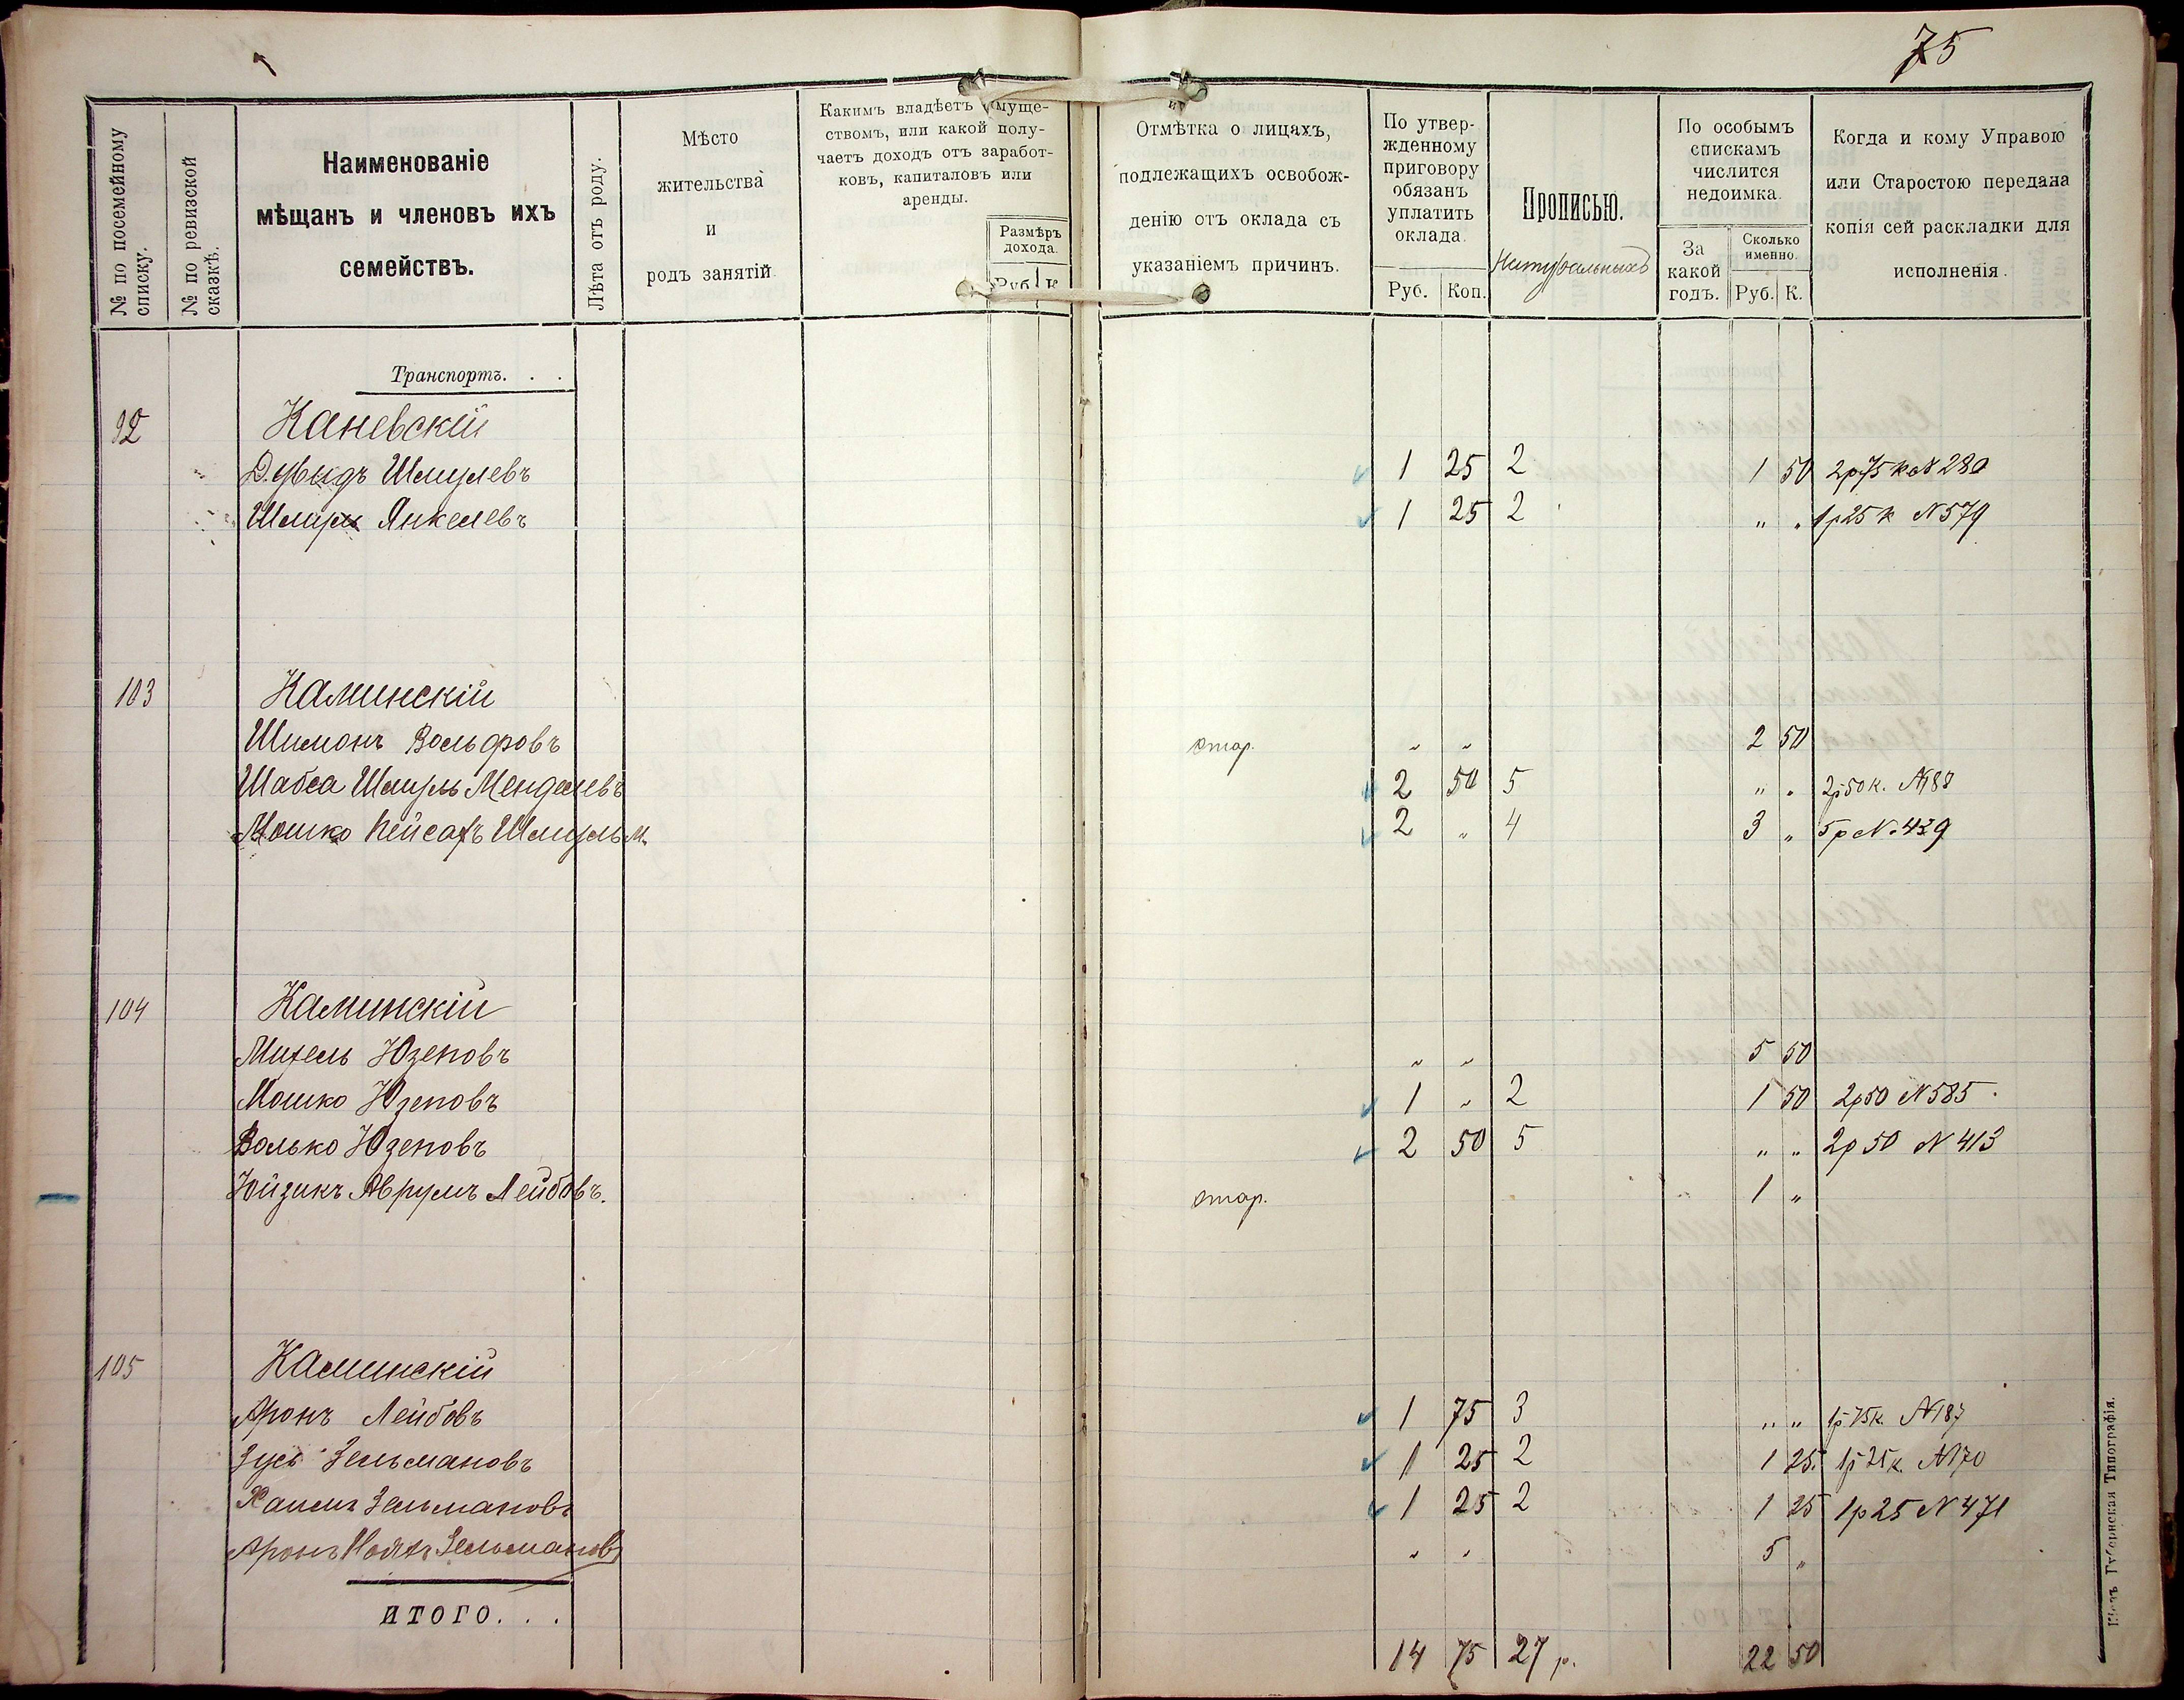 75
№ по посемейному списку.
№ по ревизской сказкѣ.
Наименованіе
мѣщанъ и членовъ ихъ
семействъ.
Лѣта отъ роду.
Мѣсто
жительства
и
родъ занятій
Какимъ владѣетъ имуще-
ствомъ, или какой полу-
чаетъ доходъ отъ заработ-
ковъ, капиталовъ или
аренды.
Размѣръ
дохода.
Руб. К
Отмѣтка о лицахъ,
подлежащихъ освобож-
денію отъ оклада съ
указаніемъ причинъ.
По утвер-
жденному
приговору
обязанъ
уплатить
оклада.
Руб. Коп.
Прописью.
Натуральныхъ
По особымъ
спискамъ
числится
недоимка.
За
какой
годъ.
Сколько
именно.
Руб. К.
Когда и кому Управою
или Старостою передана
копія сей раскладки для
исполненія.
Транспортъ. . .
92 Каневскій
Дувидъ Шмулевъ 1 25 2 1 50 2р75к № 280
Шмуль Янкелевъ 1 25 2 " " 1р25к N579
103 Каминскій
Шимонъ Вольфовъ стар. " " 2 50
Шабса Шмуль Менделевъ 2 50 5 " " 2р50к. №188
Мошко Пейсахъ Шмуль М. 2 " 4 3 " 5р №439
104 Каминскій
Михель Юзеповъ " " 5 50
Мошко Юзеповъ 1 " 2 1 50 2р50 N585.
Волько Юзеповъ 2 50 5 " " 2р50 N 413
Юйзикъ Аврумъ Лейбовъ. стар. 1 "
105 Каминскій
Аронъ Лейбовъ 1 75 3 " " 1р75к. №187
Зусь Зельмановъ 1 25 2 1 25. 1р25к. №170
Хаимъ Зельмановъ 1 25 2 1 25 1р25 N471
Аронъ Нойахъ Зельмановъ " " 5 "
ИТОГО. . . 14 75 27 р. 22 50
Кіевъ Губернская Типографія.